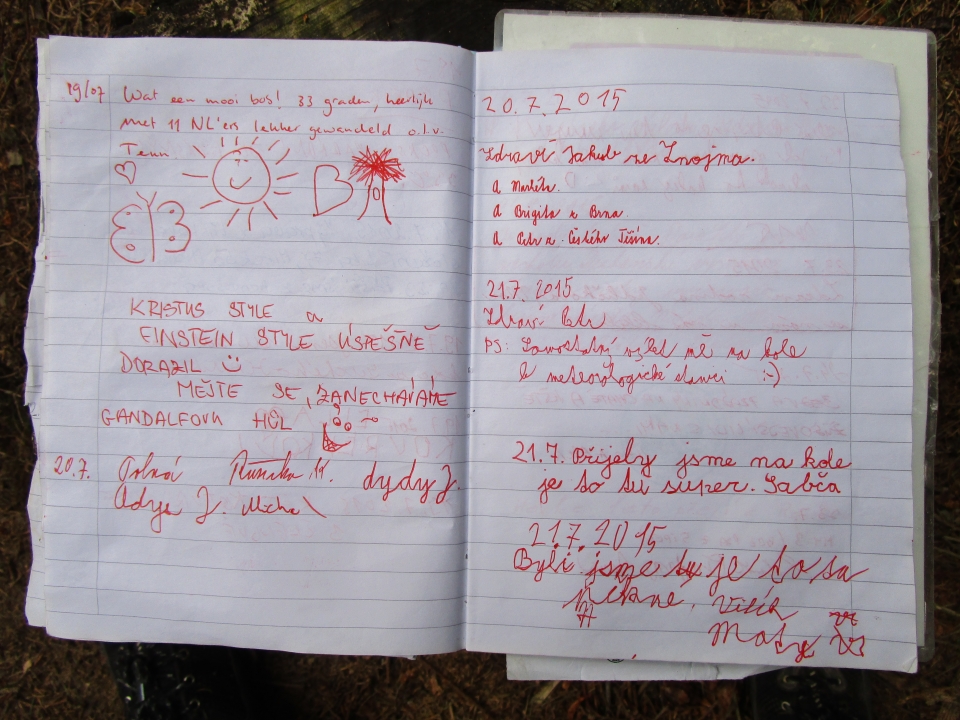 19/07 Wat een mooi bos! 33 graden, heerlijk
met 11 NL'ers lekker gewandeld o.l.v.
KRISTUS STYLE a
EINSTEIN STYLE ÚSPĚŠNĚ
DORAZIL
MĚJTE SE, ZANECHÁVÁME
GANDALFOVU HŮL
20.7. dydy J.
J. Michal
20.7.2015
Zdraví Jakub ze Znojma.
A Markéta.
A Brigita z Brna
A Petr z Českého Těšína.
21.7.2015
Zdraví Petr
PS: výlet mě na kole
k meteorologické stanici :-)
21.7. Přijely jsme na kole
je to tu super. Sabča
21.7.2015
Byli jsme tu je to sa
pěkne. Vítek
Maty